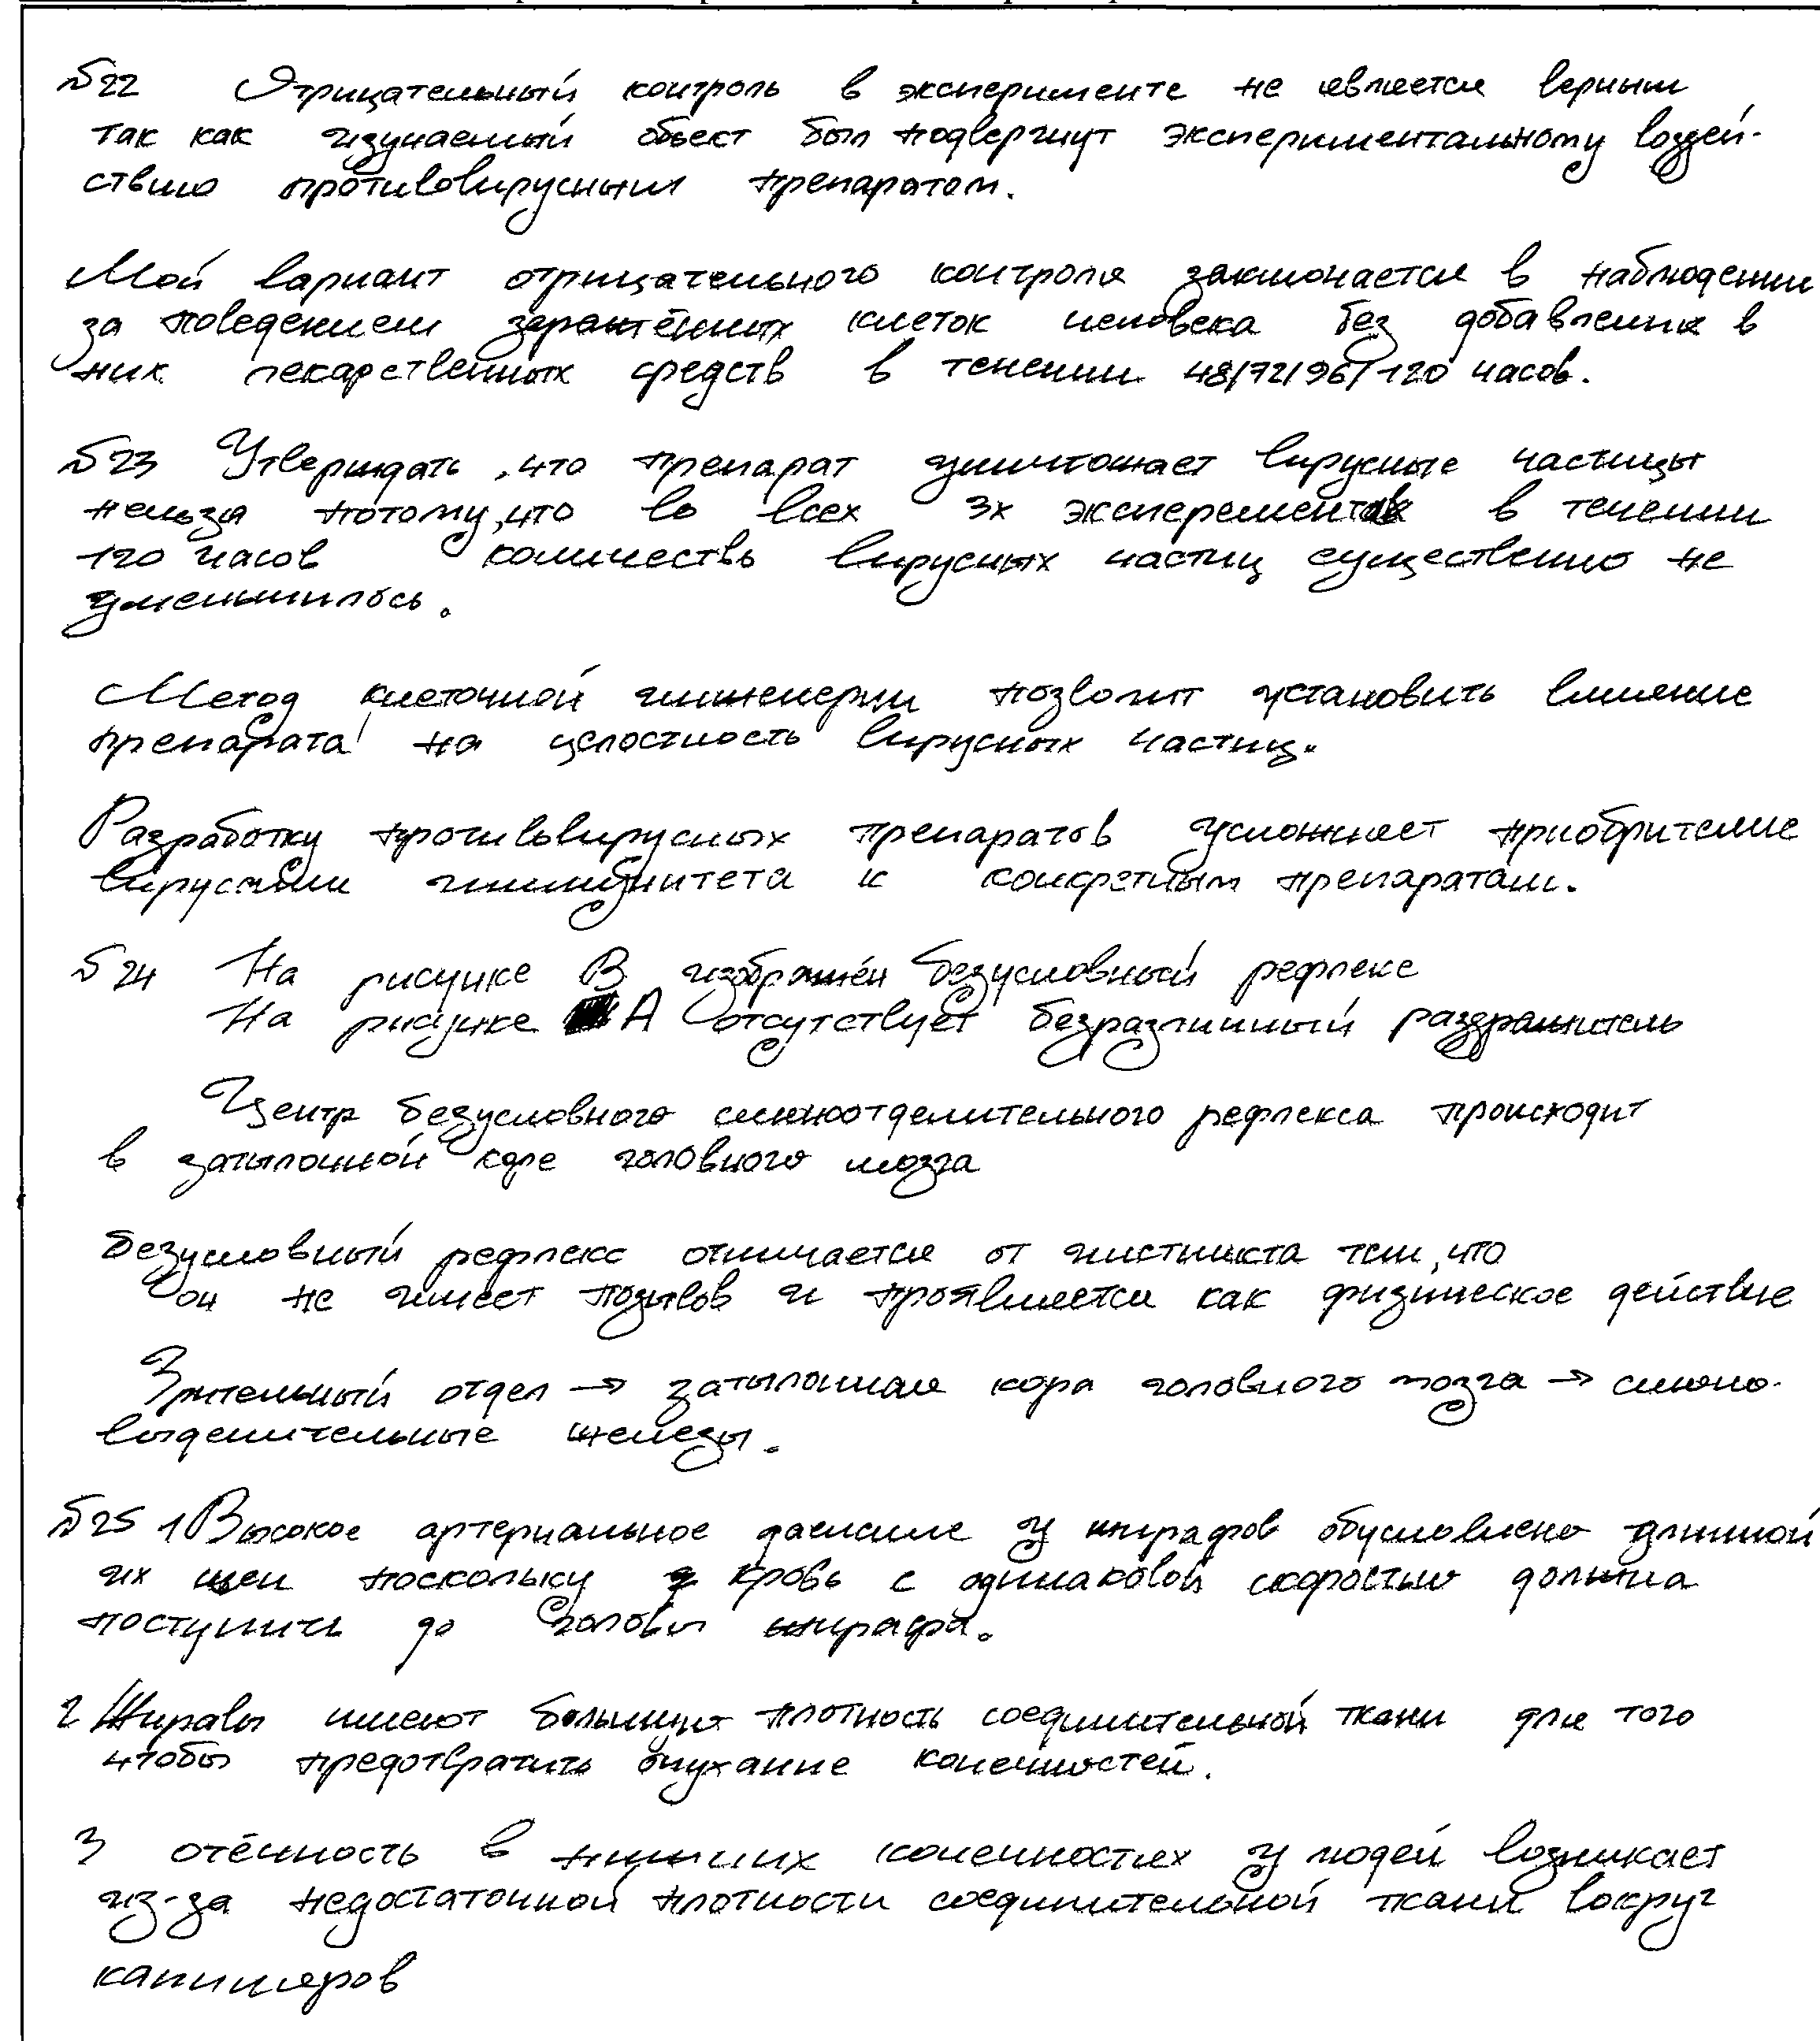 №22 Отрицательный контроль в эксперименте не является верным
так как изучаемый объект был подвергнут экспериментальному воздей-
ствию противовирусным препаратом.
Мой вариант отрицательного контроля заключается в наблюдении
за поведением заражённых клеток человека без добавления в
них лекарственных средств в течении 48/72/96/120 часов.
№23 Утверждать, что препарат уничтожает вирусные частицы
нельзя потому, что во всех 3х эксперементах в течении
120 часов количество вирусных частиц существенно не
уменьшилось.
Метод клеточной инженерии позволит установить влияние
препарата на целостность вирусных частиц.
Разработку противовирусных препаратов усложняет приобритение
вирусами иммунитета к конкретным препаратам.
№24 На рисунке В изображён безусловный рефлекс
На рисунке А отсутствует безразличный раздражитель
Центр безусловного слюноотделительного рефлекса происходит
в затылочной коре головного мозга
Безусловный рефлекс отличается от инстинкта тем, что
он не имеет позывов и проявляется как физическое действие
Зрительный отдел → затылочная кора головного мозга → слюно-
выделительные железы.
№25 1 Высокое артериальное давление у жирафов обусловлено длинной
их шеи поскольку кровь с одинаковой скоростью должна
поступить до головы жирафа.
2 Жирафы имеют большую плотность соединительной ткани для того
чтобы предотвратить опухание конечностей.
3 отёчность в нижних конечностях у людей возникает
из-за недостаточной плотности соединительной ткани вокруг
капилляров